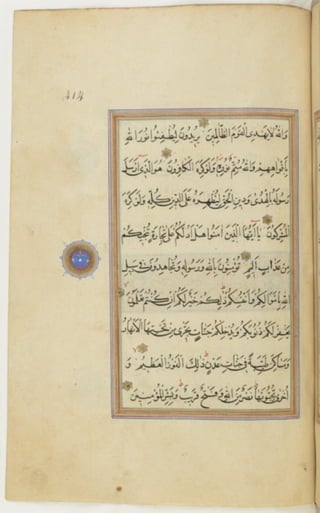 وَاللهُ لَا يَهْدِي الْقَوْمَ الظَّالِمِينَ يُرِيدُونَ لِيُطْفِئُوا نُورَ اللهِ
بِأَفْوَاهِهِمْ وَاللهُ مُتِمُّ نُورِهِ وَلَوْ كَرِهَ الْكَافِرُونَ هُوَ الَّذِي أَرْسَلَ
رَسُولَهُ بِالْهُدَى وَدِينِ الْحَقِّ لِيُظْهِرَهُ عَلَى الدِّينِ كُلِّهِ وَلَوْ كَرِهَ
الْمُشْرِكُونَ يَا أَيُّهَا الَّذِينَ آمَنُوا هَلْ أَدُلُّكُمْ عَلَى تِجَارَةٍ تُنْجِيكُمْ
مِنْ عَذَابٍ أَلِيمٍ تُؤْمِنُونَ بِاللهِ وَرَسُولِهِ وَتُجَاهِدُونَ فِي سَبِيلِ
اللهِ بِأَمْوَالِكُمْ وَأَنْفُسِكُمْ ذَلِكُمْ خَيْرٌ لَكُمْ إِنْ كُنْتُمْ تَعْلَمُونَ
يَغْفِرْ لَكُمْ ذُنُوبَكُمْ وَيُدْخِلْكُمْ جَنَّاتٍ تَجْرِي مِنْ تَحْتِهَا الْأَنْهَارُ
وَمَسَاكِنَ طَيِّبَةً فِي جَنَّاتِ عَدْنٍ ذَلِكَ الْفَوْزُ الْعَظِيمُ وَ
أُخْرَى تُحِبُّونَهَا نَصْرٌ مِنَ اللهِ وَفَتْحٌ قَرِيبٌ وَبَشِّرِ الْمُؤْمِنِينَ